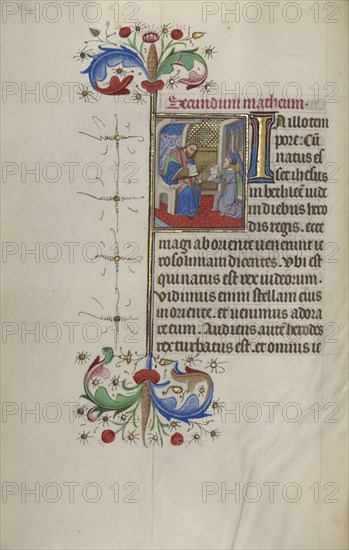 Secundum matheum.
In illo tem
pore: Cū
natus es
set ihesus
in bethleē iude
in diebus hero
dis regis. ecce
magi ab oriente uenerunt ie
rosolimam dicentes. Vbi est
qui natus est rex iudeorum.
Vidimus enim stellam eius
in oriente. et uenimus adora
re eum. Audiens autē herodes
rex turbatus est. et omnis ie
PHOTO 12